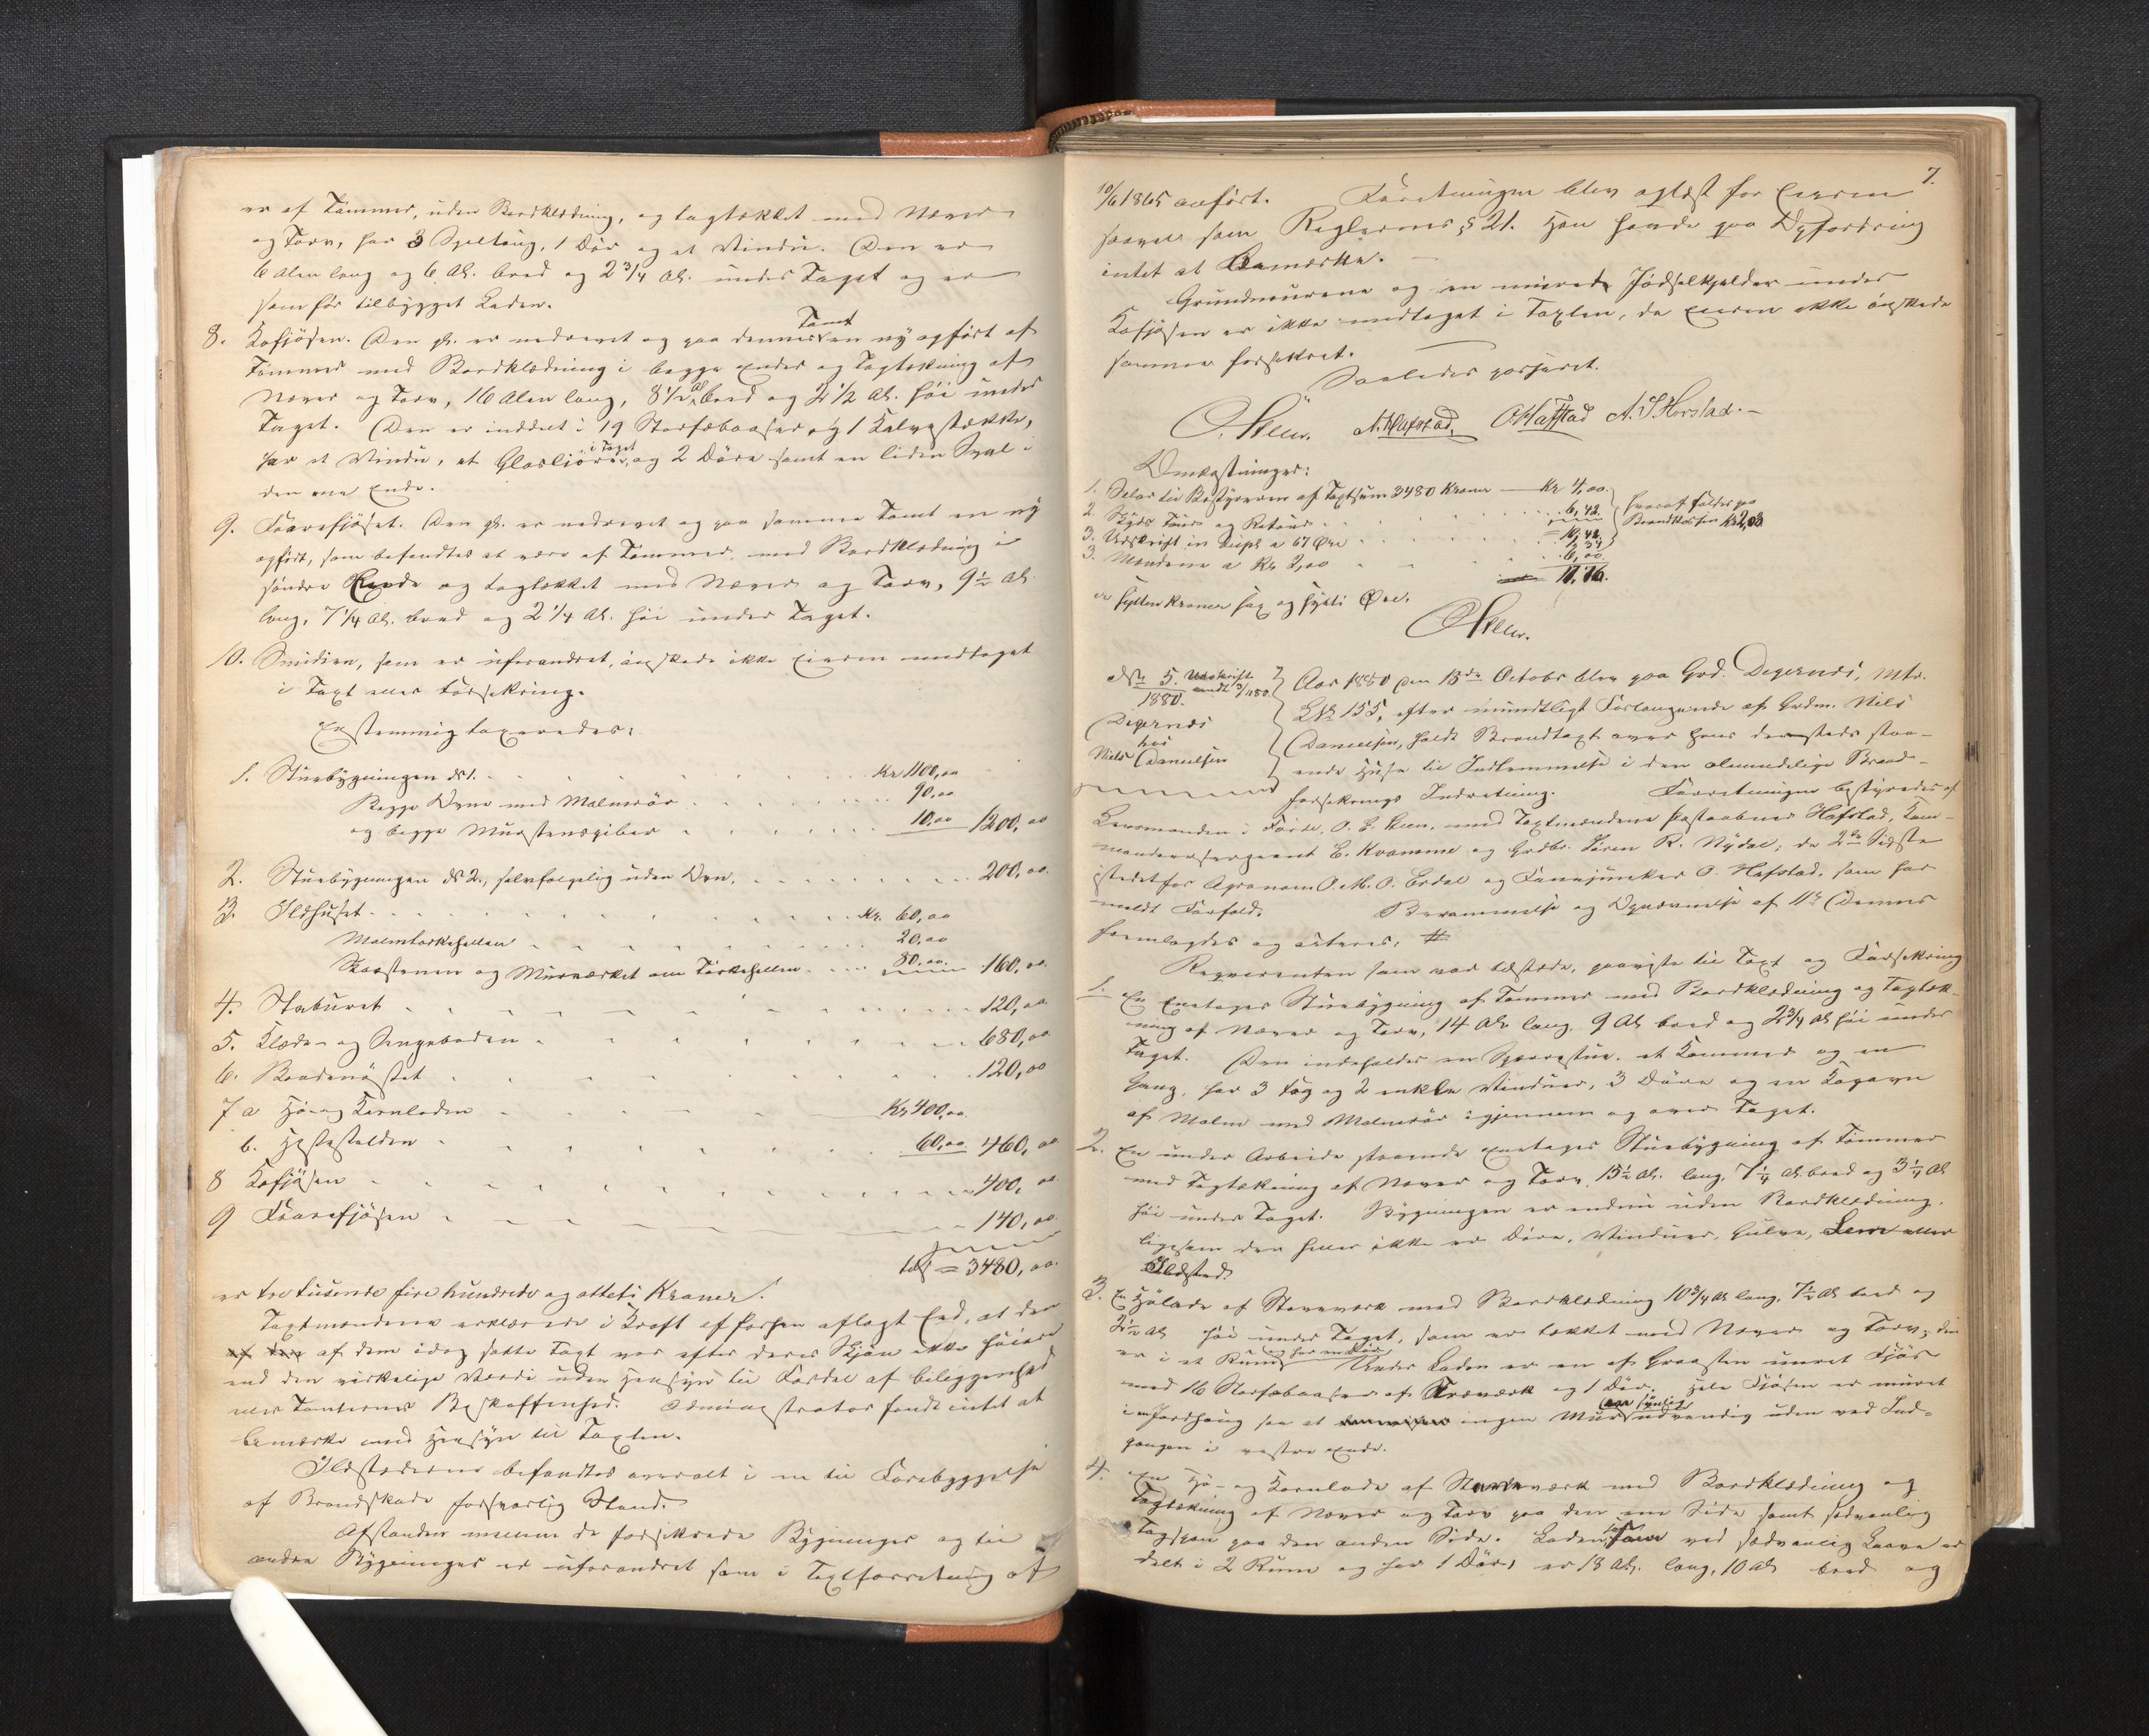 er af Tømmer, uden Bordklædning, og tagtækket med Næver
og Torv, har 3 Spiltaug, 1 Dør og et Vindu. Den er
6 Alen lang og 6 Al. bred og 2 3/4 Al. under Taget og er
som før tilbygget Laden.
8. Kofjøsen. Den gl. er nedrevet og paa dennes Tomt en ny opført af
Tømmer med Bordklædning i begge Ender og Tagtækning af
Næver og Torv, 16 Alen lang, 8 1/2 Al. bred og 2 1/2 Al. høi under
Taget. Den er inddelt i 19 Storfæbaaser og 1 Kalvestække,
har et Vindu, et Glasliore i Taget, og 2 Døre samt en liden Sval i
den ene Ende.
9. Faarefjøset. Den gl. er nedrevet og paa samme Tomt en ny
opført, som befandtes at være af Tømmer, med Bordklædning i
søndre Ende og tagtækket med Næver og Torv, 9 1/2 Al.
lang, 7 1/4 Al. bred og 2 1/4 Al. høi under Taget.
10. Smidien, som er uforandret, ønskede ikke Eieren medtaget
i Taxt eller Forsikring.
Enstemmig taxeredes:
1. Stuebygningen № 1. Kr 1100,00
Begge Ovne med Malmrør 90,00
og begge Murstenspiber 10,00 1200,00
2. Stuebygningen № 2, selvfølgelig uden Ovn, 200,00
3. Ildhuset Kr. 60,00
Malmtørkehellen 20,00
Skorstenen og Murværket om Tørkehellen 80,00 160,00
4. Staburet 120,00
5. Klæde- og Sengeboden 680,00
6. Baadenøstet 120,00
7 a Hø- og Kornladen Kr 400,00
b. Hestestalden 60,00 460,00
8 Kofjøsen 400,00
9 Faarefjøsen 140,00
tils = 3480,00
er tre tusende fire hundrede og otteti Kroner.
Taxtmændene erklærede i Kraft af forhen aflagt Eed, at den
af dem idag satte Taxt var efter deres Skjøn ikke høiere
end den virkelige Værdi uden Hensyn til Fordel af Beliggenhed
eller Tomternes Beskaffenhed. Administrator fandt intet at
bemærke med Hensyn til Taxten.
Ildstederne befandtes overalt i en til Forebyggelse
af Brandskade forsvarlig Stand.
Afstanden mellem de forsikrede Bygninger og til
andre Bygninger er uforandret som i Taxtforretning af
7.
10/6 1865 anført. Forretningen blev oplæst for Eieren
saavel som Reglernes § 21. Han havde paa Opfordring
intet at bemærke.
Grundmurene og en muret Gjødselkjelder under
Kofjøsen er ikke medtaget i Taxten, da Eieren ikke ønskede
samme forsikret.
Saaledes passeret.
O. Steen. A. Hafstad. O Hafstad A. S. Horstad.
Omkostninger:
1. Salær til Bestyreren af Taxtsum 3480 Kroner Kr 4,00
2. Skyds Tour og Retour 6,42
= 10,42
3. Udskrift in dupl a 67 Øre 1,34
3. Mændene a Kr 2,00 6,00
hvoraf falder paa
Brandkassen Kr 2,08
17,76.
er sytten Kroner sex og sytti Øre.
OSteen.
№ 5.
1880.
Udskrift
sendt
Degernes
hos
Niels Danielsen
Aar 1880 den 13de October blev paa Grd. Degernes, Mtr.
L№ 155, efter mundtligt Forlangende af Grdm. Nils
Danielsen, holdt Brandtaxt over hans dersteds staa-
ende Huse til Indlemmelse i den almindelige Brand-
forsikrings Indretning. Forretningen bestyredes af
Lensmanden i Førde, O. E. Steen, med Taxtmændene Postaabner Hafstad, Kom-
mandeersergeant E. Kvamme og Grdbr. Søren R. Nydal; de 2de Sidste
istedetfor Agronom O. M. O. Erdal og Fanejunker O. Hafstad, som har
meldt Forfald. Berammelse og Opnævnelse af 11te Dennes
fremlagdes og acteres. #
Reqvirenten som var tilstede, paaviste til Taxt og Forsikring
1. En Enetages Stuebygning af Tømmer med Bordklædning og Tagtæk-
ning af Næver og Torv, 14 Al. lang, 9 Al. bred og 2 3/4 Al. høi under
Taget. Den indeholder en Sperrestue, et Kammer og en
Gang, har 3 Fag og 2 enkle Vinduer, 3 Døre og en Kogovn
af Malm med Malmrør igjennem og over Taget.
2. En under Arbeide staaende enetages Stuebygning af Tømmer
med Tagtækning af Næver og Torv, 15 1/2 Al. lang, 7 1/4 Al. bred og 3 1/4 Al.
høi under Taget. Bygningen er endnu uden Bordklædning,
ligesom der heller ikke er Døre, Vinduer, Gulve, Lem eller
Ildsted.
3. En Hølade af Stavværk med Bordklædning 10 3/4 Al. lang, 7 1/2 Al. bred og
2 1/2 Al. høi under Taget, som er tækket med Næver og Torv; den
er i et Rum og har en Dør. Under Laden er en af Graasten muret Fjøs
med 16 Storfæbaaser af Træværk og 1 Dør. Hele Fjøsen er muret
i en Jordhaug saa at ingen Mur er synlig udvendig uden ved Ind-
gangen i vestre Ende.
4. En Hø- og Kornlade af Stavværk med Bordklædning og
Tagtækning af Næver og Torv paa den ene Side samt sædvanlig
Tagspon paa den anden Side. Laden som ved sædvanlig Laave er
delt i 2 Rum og har 1 Dør, er 18 Al. lang, 10 Al. bred og